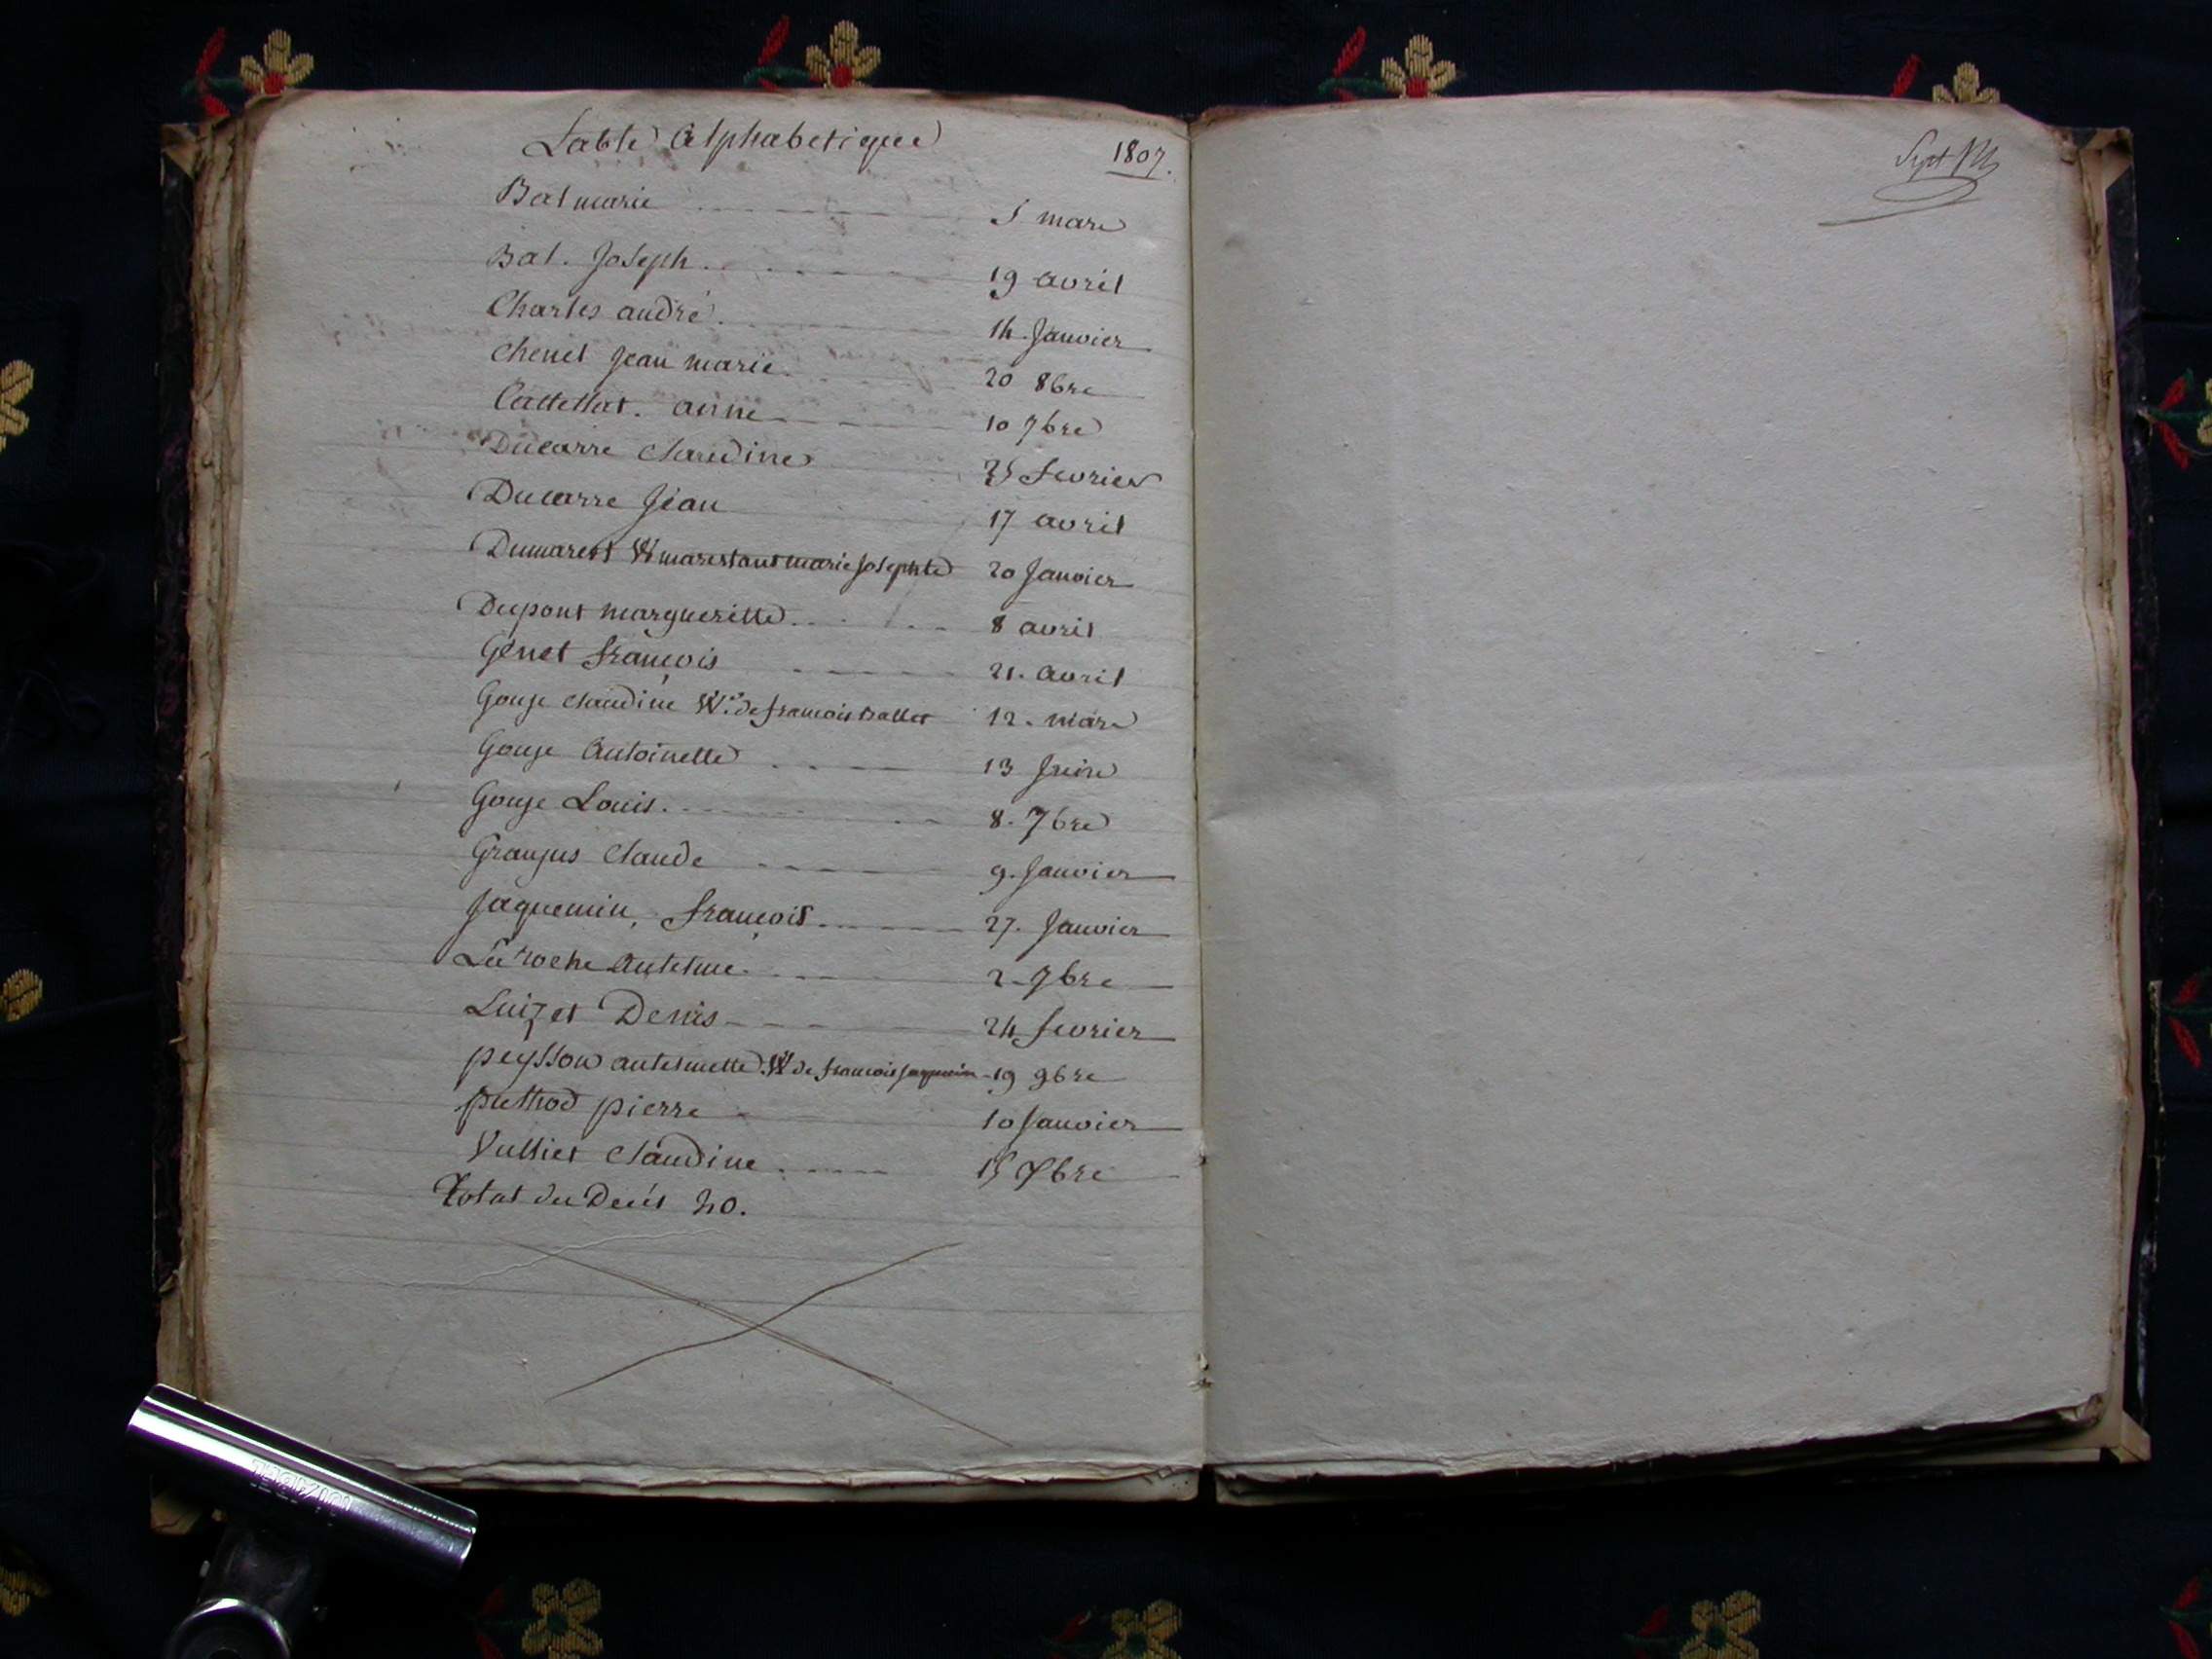 Table Alphabetique 1807.
Bal marie 5 mars
Bal. Joseph. 19 avril
Charles andré. 14. Janvier
Chenet Jean marie. 20 8bre
Cattellat. anne 10 7bre
Ducarre Claudine 25 fevrier
Ducarre Jean 17 avril
Dumarest Ve marestant marie Josephte 20 Janvier
Dupont margueritte. 8 avril
Genet françois 21. avril
Gouje Claudine Ve. de francois Ballet 12. mars
Gouje Antoinette 13 Juin
Gouje Louis. 8. 7bre
Granjus Claude 9. Janvier
Jaquemin, françois. 27. Janvier
La roche Antelme. 2. 7bre
Luizet Denis 24 fevrier
peysson antelmette Ve de francois Jaquemin 19 9bre
puthod pierre 10 Janvier
Vulliet Claudine 15 7bre
Total du Decés 20.
Sept